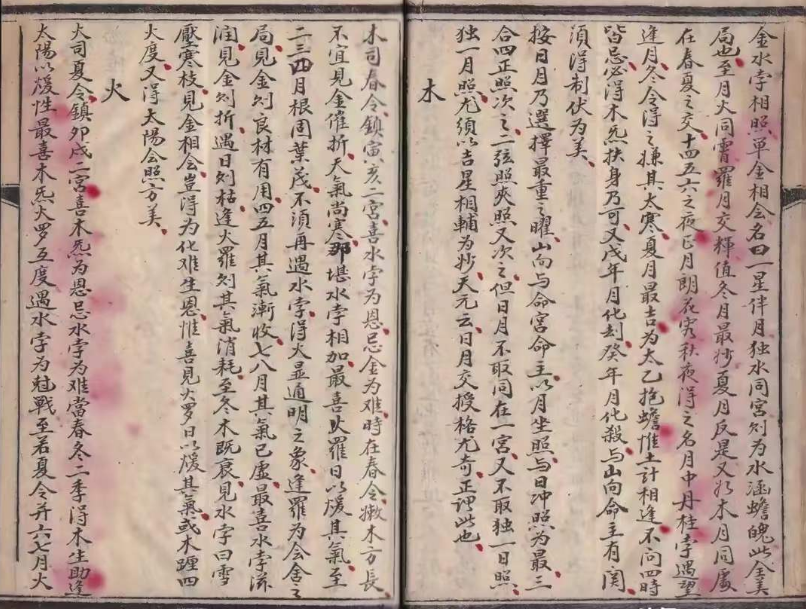 金水孛相照單金相會名曰一星伴月独水同宮則为水涵蟾魄此全美
局也至月火同霄羅月交輝值冬月最妙夏月反是又水木月同處
在春夏之交十四五六之夜正月朗花秀秋夜得之名月中丹桂孛遇望
逢月冬令得之嫌其太寒夏月最吉为太乙抱蟾惟土計相逢不问四時
皆忌必得木炁扶身乃可又戊年月化刦癸年月化殺与山向命主有関
須得制伏为美
木
按日月乃選擇最重之曜山向与命宮命主以月坐照与日冲照为最三
合四正照次之二弦照夾照又次之但日月不取同在一宮又不取独一日照
独一月照尤須以吉星相輔为妙天元云日月交授格尤奇正謂此也
木司春令鎮寅亥二宮喜水孛为恩忌金为难時在春令嫩木方長
不宜見金催折天氣尚寒那堪水孛相加最喜火羅日以煖其氣至
二三四月根固葉茂不須再遇水孛得火显通明之象逢羅为会舍之
局見金則良材有用四五月其氣漸收七八月其氣已虛最喜水孛滋
潤見金則折遇日則枯逢火羅則其氣消耗至冬木既衰見水孛曰雪
壓寒枝見金相会豈得为化难生恩惟喜見火罗日以煖其氣或木躔四
火度又得太陽会照方美
火
火司夏令鎮卯戌二宮喜木炁为恩忌水孛为难當春冬二季得木生助逢
太陽以煖性最喜木炁火罗互度遇水孛为尅戰至若夏令并六七月火